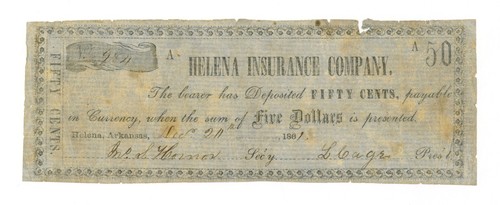 A A 50
HELENA INSURANCE COMPANY.
FIFTY CENTS.
The bearer has Deposited FIFTY CENTS, payable
in Currency, when the sum of Five Dollars is presented.
Helena, Arkansas, Dec 20th 1861
Jno. S. Hornor Sec'y L. Cage Pres't